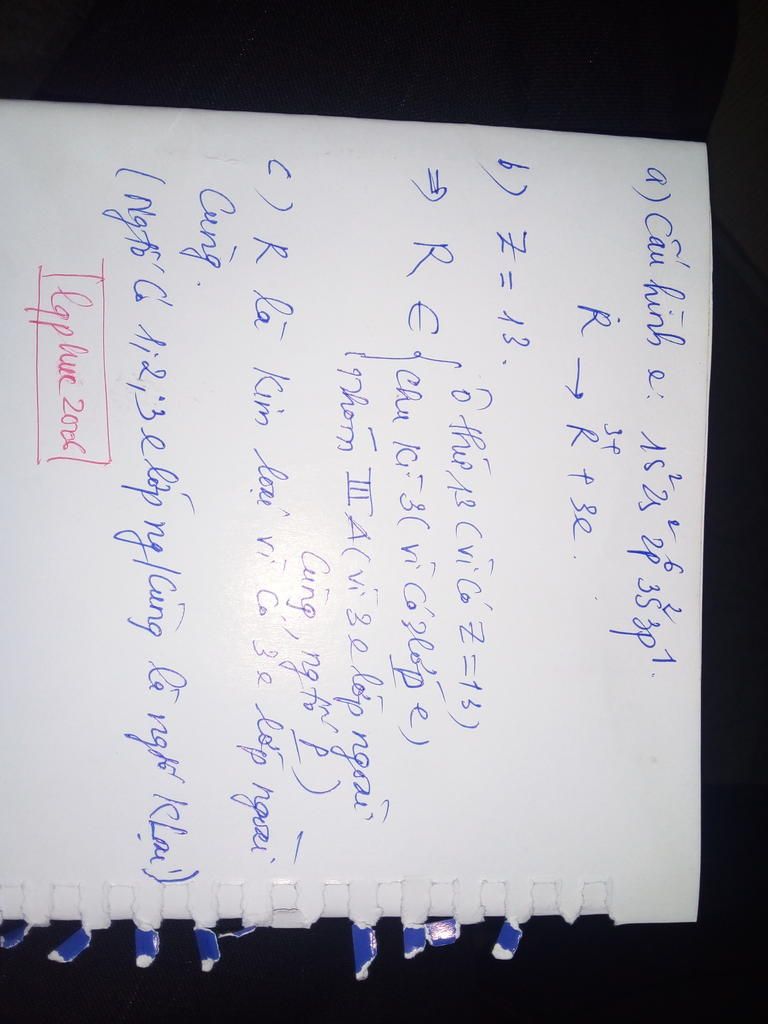 a) Cấu hình e: 1s² 2s² 2p⁶ 3s² 3p¹.
R → R³⁺ + 3e.
b) Z = 13.
ô thứ 13 (vì có Z = 13)
⇒ R ∈ { chu kì 3 (vì có 3 lớp e)
nhóm III A (vì 3 e lớp ngoài
cùng, ngtố p)
c) R là kim loại vì có 3e lớp ngoài
cùng.
(Ngtố có 1,2,3 e lớp ng/cùng là ngtố KLoại)
lqphuc2006